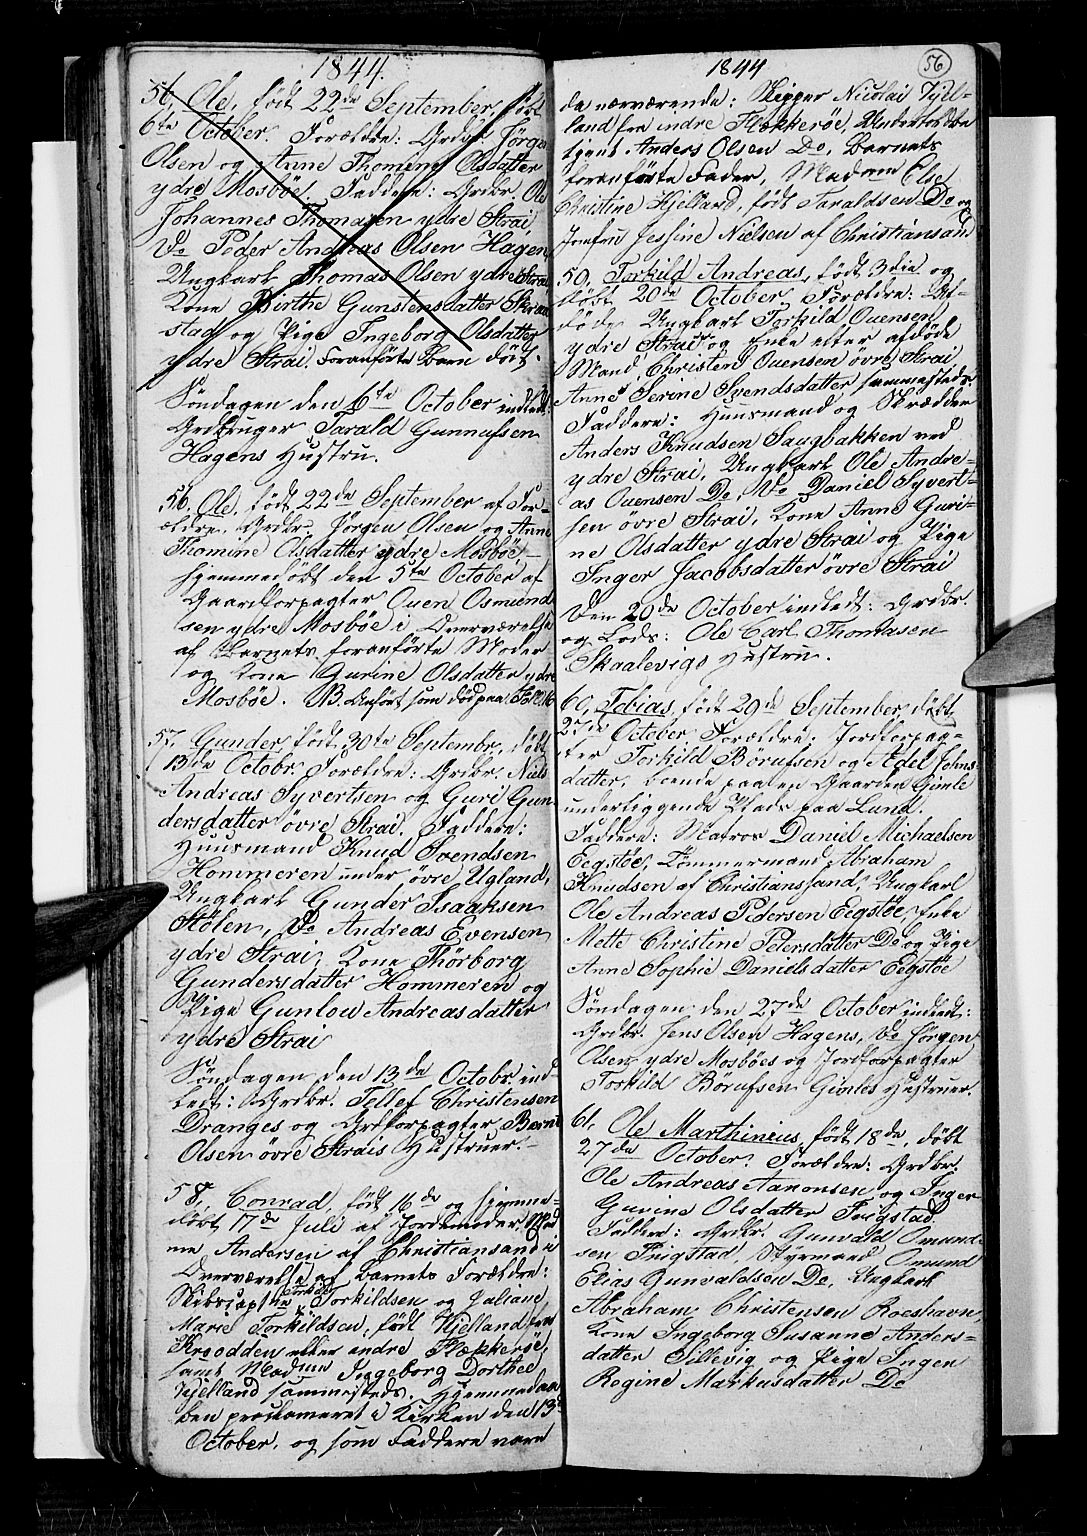 1844.
56, Ole, født 22de September, døbt
6te October. Forældre: Grdbr Jørgen
Olsen og Anne Thomine Olsdatter
ydre Mosbøe, Faddere: Grdbr Ole
Johannes Thomasen ydre Strai,
Do Peder Andreas Olsen Hagen,
Ungkarl Thomas Olsen ydre Strai
Kone Birthe Gunstensdatter
stad og Pige Ingeborg Olsdatter
ydre Strai. Foranførte Barn død.
Søndagen den 6te October indledt:
Grdbruger Tarald Gunnufsen
Hagens Hustru.
56. Ole, født 22de September af For-
ældre, Grdbr. Jørgen Olsen og Anne
Thomine Olsdatter ydre Mosbøe,
hjemmedøbt den 5te October af
Gaardforpagter Ouen Osmund-
sen ydre Mosbøe i Overværelse
af Barnets foranførte Moder
og Kone Gurine Olsdatter ydre
Mosbøe. NB. Anført som død paa Fol.
57. Gunder, født 30te Septembr, døbt
13de Octobr. Forældre: Grdbr. Niels
Andreas Syvertsen og Guri Gun-
dersdatter øvre Strai. Faddere:
Huusmand Knud Svendsen
Hommeren under øvre Ugland,
Ungkarl Gunder Isaaksen
Stølen, Do Andreas Evensen
ydre Strai, Kone Thørborg
Gundersdatter Hommeren og
Pige Gunlou Andreasdatter
ydre Strai
Søndagen den 13de Octobr. ind-
ledt: Grdbr. Tellef Christensen
Dranges og Grdforpagter Bernt
Olsen øvre Strais Hustruer.
58, Conrad, født 16de og hjemme-
døbt 17de Juli af Jordemoder Mad-
me Andersen af Christiansand i
Overværelse af Barnets Forældre:
Skibscaptne Torkildsen og Juliane
Marie Torkildsen, født Kjelland fra
Kroodden eller indre Flekkerøe,
samt Madme Ingeborg Dorthee
Kjelland sammesteds. Hjemmedaa-
ben proclameret i Kirken den 13de
October, og som Faddere vare
56
1844
da nærværende: Skipper Nicolai Kjel-
land fra indre Flekkerøe, Undertoldbe-
tjent Anders Olsen Do, Barnets
foranførte Fader, Madme Else
Christine Kjelland, født Taraldsen Do og
Jomfru Jessine Nielsen af Christiansand
59, Torkild Andreas, født 3die og
døbt 20de October. Forældre: Af-
døde Ungkarl Torkild Ouensen
ydre Strai og Enke efter afdøde
Mand, Christen Ouensen øvre Strai
Anne Serine Svendsdatter sammesteds.
Faddere: Huusmand og Skrædder
Anders Knudsen Saugbakken ved
ydre Strai, Ungkarl Ole Andre-
as Ouensen Do, Do Daniel Syvert-
sen øvre Strai, Kone Anne Guri-
ne Olsdatter ydre Strai og Pige
Inger Jacobsdatter øvre Strai
Den 20de October indledt: Grdbr.
og Lods: Ole Carl Thomasen
Skaalevigs Hustru.
60, Tobias, født 29de September, døbt
27de October. Forældre: Jordforpag-
ter Torkild Børufsen og Adel Johns-
datter, boende paa en Gaarden Gimle
underliggende Plads paa Lund.
Faddere: Matros Daniel Michaelsen
Eegstøe, Tømmermand Abraham
Knudsen af Christianssand, Ungkarl
Ole Andreas Pedersen Eegstøe, Enke
Mette Christine Petersdatter Do og Pige
Anne Sophie Danielsdatter Eegstøe
Søndagen den 27de October indledt:
Grdbr. Jens Olsen Hagens, Do Jørgen
Olsen ydre Mosbøes og Jordforpagter
Torkild Børufsen Gimles Hustruer.
61, Ole Marthinius, født 18de, døbt
27de October. Forældre: Grdbr.
Ole Andreas Aanonsen og Inger
Gurine Olsdatter Frigstad.
Faddere: Grdbr. Gunvald Omund-
sen Frigstad, Styrmand Omund
Elias Gunvaldsen Do, Ungkarl
Abraham Christensen Roeshavn,
Kone Ingeborg Susanne Anders-
datter Sillevig og Pige Ingen
Regine Markusdatter Do